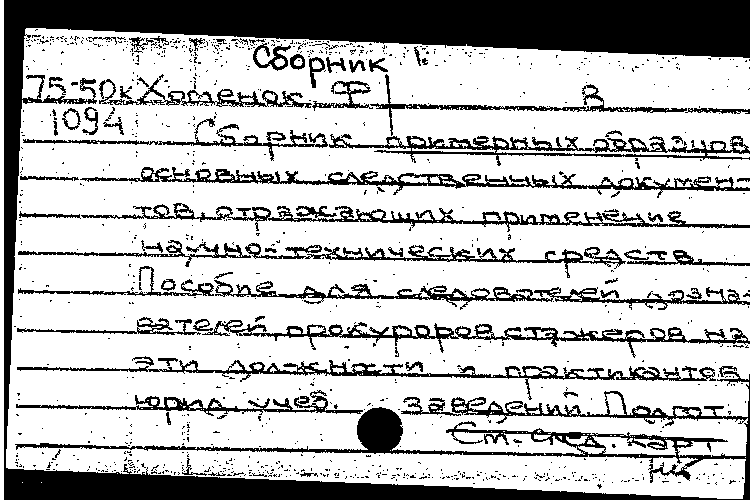 Сборник 1.
75-50к Хотенок, Ф В
1094 Сборник примерных образцов
основных следственных докумен-
тов, отражающих применение
научно-технических средств.
Пособие для следователей, дозна-
вателей, прокуроров, стажеров на
эти должности и практикантов
юрид. учеб. заведений. Подгот.
См. след. карт.